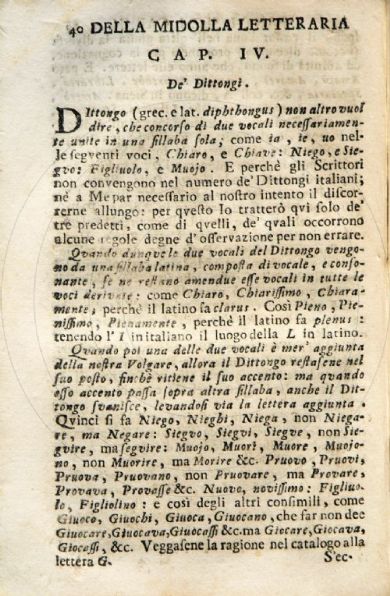 40 DELLA MIDOLLA LETTERARIA
CAP. IV.
De' Dittongi.
DIttongo (grec. e lat. diphthongus) non altro vuol
dire, che concorso di due vocali necessariamen-
te unite in una sillaba sola; come ia, ie, uo nel-
le segventi voci, Chiaro, e Chiave: Niego, e Sie-
gvo: Figliuolo, e Muojo. E perchè gli Scrittori
non convengono nel numero de' Dittongi italiani;
nè a Me par necessario al nostro intento il discor-
rerne allungo: per qvesto Io tratterò qvi solo de'
tre predetti, come di qvelli, de' qvali occorrono
alcune regole degne d'osservazione per non errare.
Quando dunqve le due vocali del Dittongo vengo-
no da una sillaba latina, composta di vocale, e conso-
nante, se ne restano amendue esse vocali in tutte le
voci derivate: come Chiaro, Chiarissimo, Chiara-
mente; perchè il latino fa clarus. Così Pieno, Pie-
nissimo, Pienamente, perchè il latino fa plenus:
tenendo l'I in italiano il luogo della L in latino.
Quando poi una delle due vocali è mer' aggiunta
della nostra Volgare, allora il Dittongo restasene nel
suo posto, finchè ritiene il suo accento: ma quando
esso accento passa sopra altra sillaba, anche il Dit-
tongo svanisce, levandosi via la lettera aggiunta.
Qvinci si fa Niego, Nieghi, Niega, non Niega-
re, ma Negare: Siegvo, Siegvi, Siegve, non Sie-
gvire, ma segvire: Muojo, Muori, Muore, Muojo-
no, non Muorire, ma Morire &c. Pruovo, Pruovi,
Pruova, Pruovano, non Pruovare, ma Provare,
Provava, Provasse &c. Nuovo, novissimo: Figliuo-
lo, Figliolino: e così degli altri consimili, come
Giuoco, Giuochi, Giuoca, Giuocano, che far non dee
Giuocare, Giuocava, Giuocassi &c. ma Giocare, Giocava,
Giocassi, &c. Veggasene la ragione nel catalogo alla
lettera G.
S'ec-